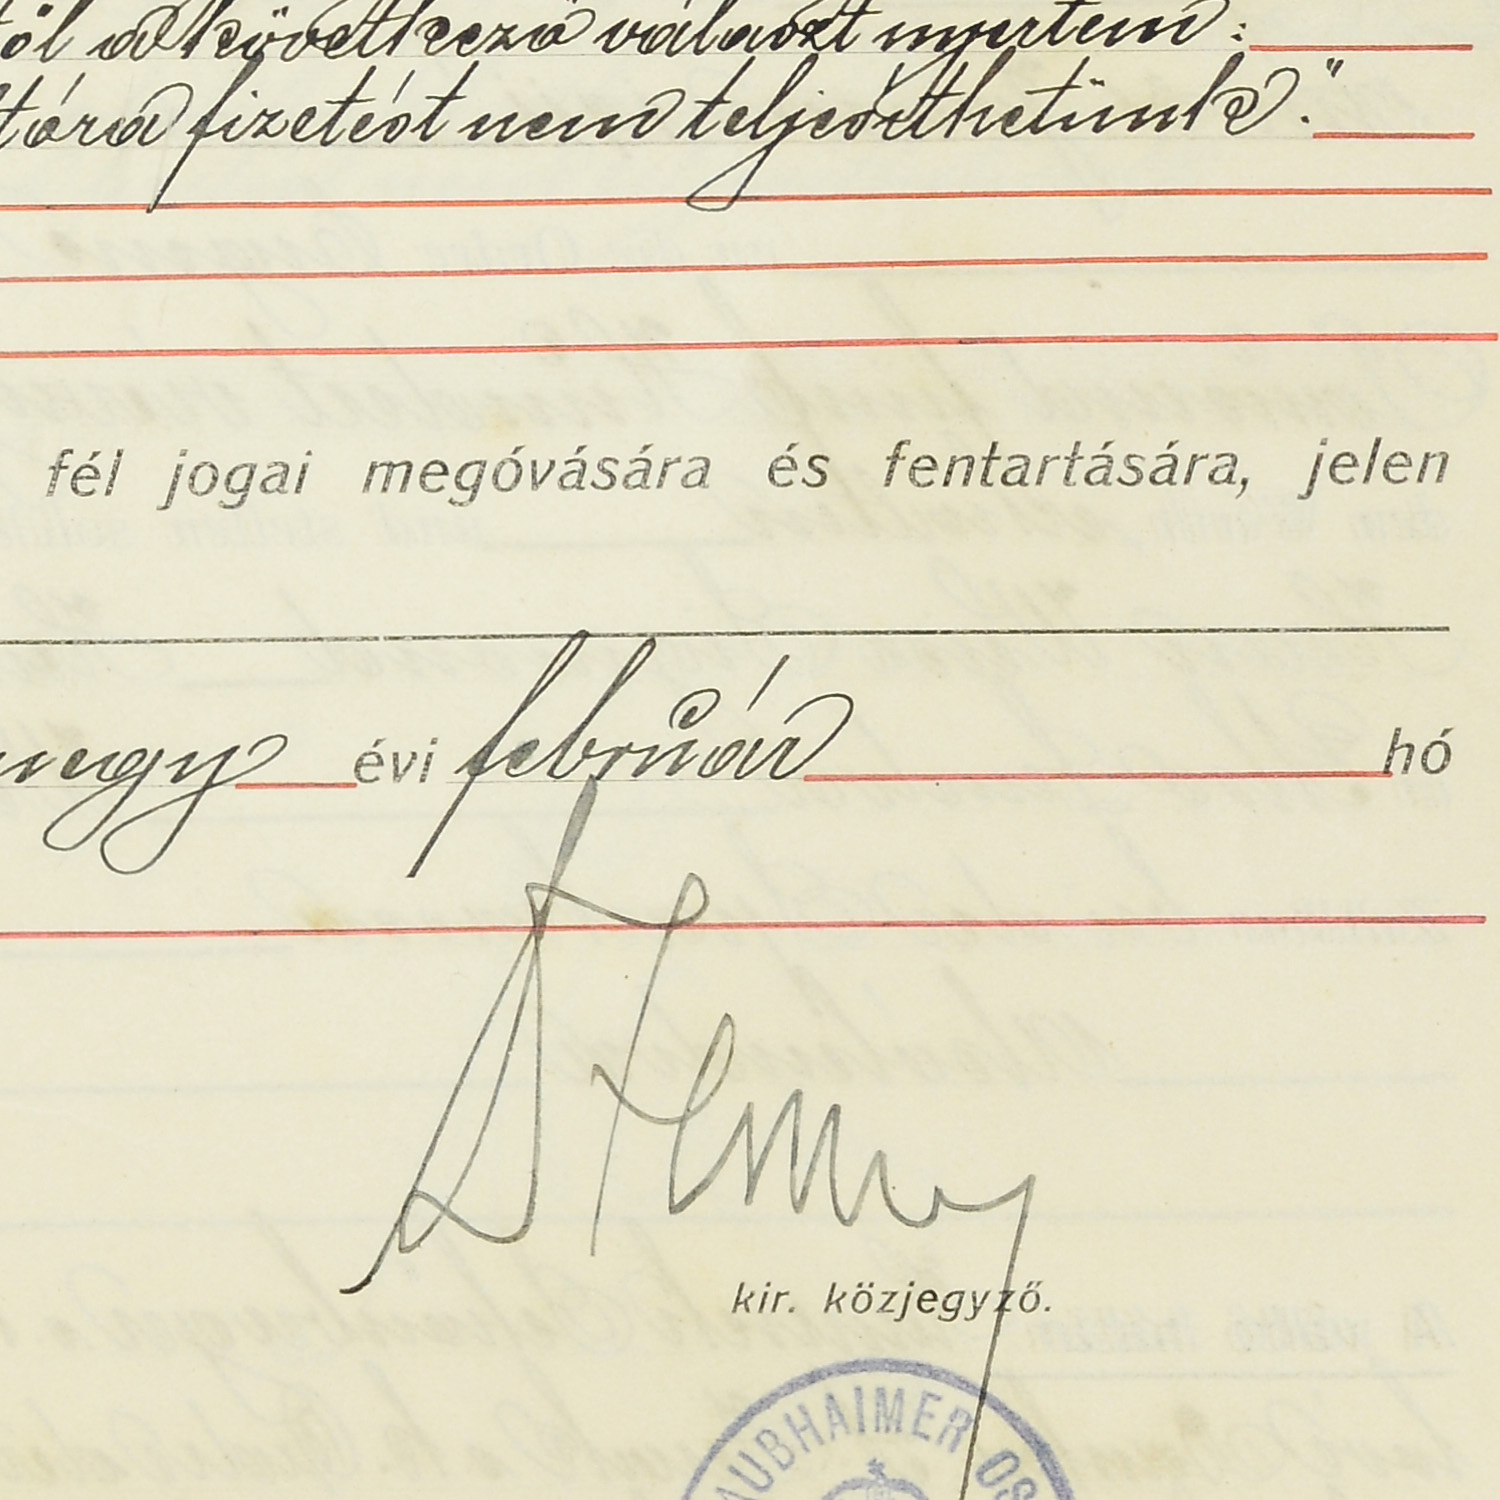 től a következő választ nyertem:
tóra fizetést nem teljesíthetünk."
fél jogai megóvására és fentartására, jelen
negy évi február hó
kir. közjegyző.
AUBHAIMER OS